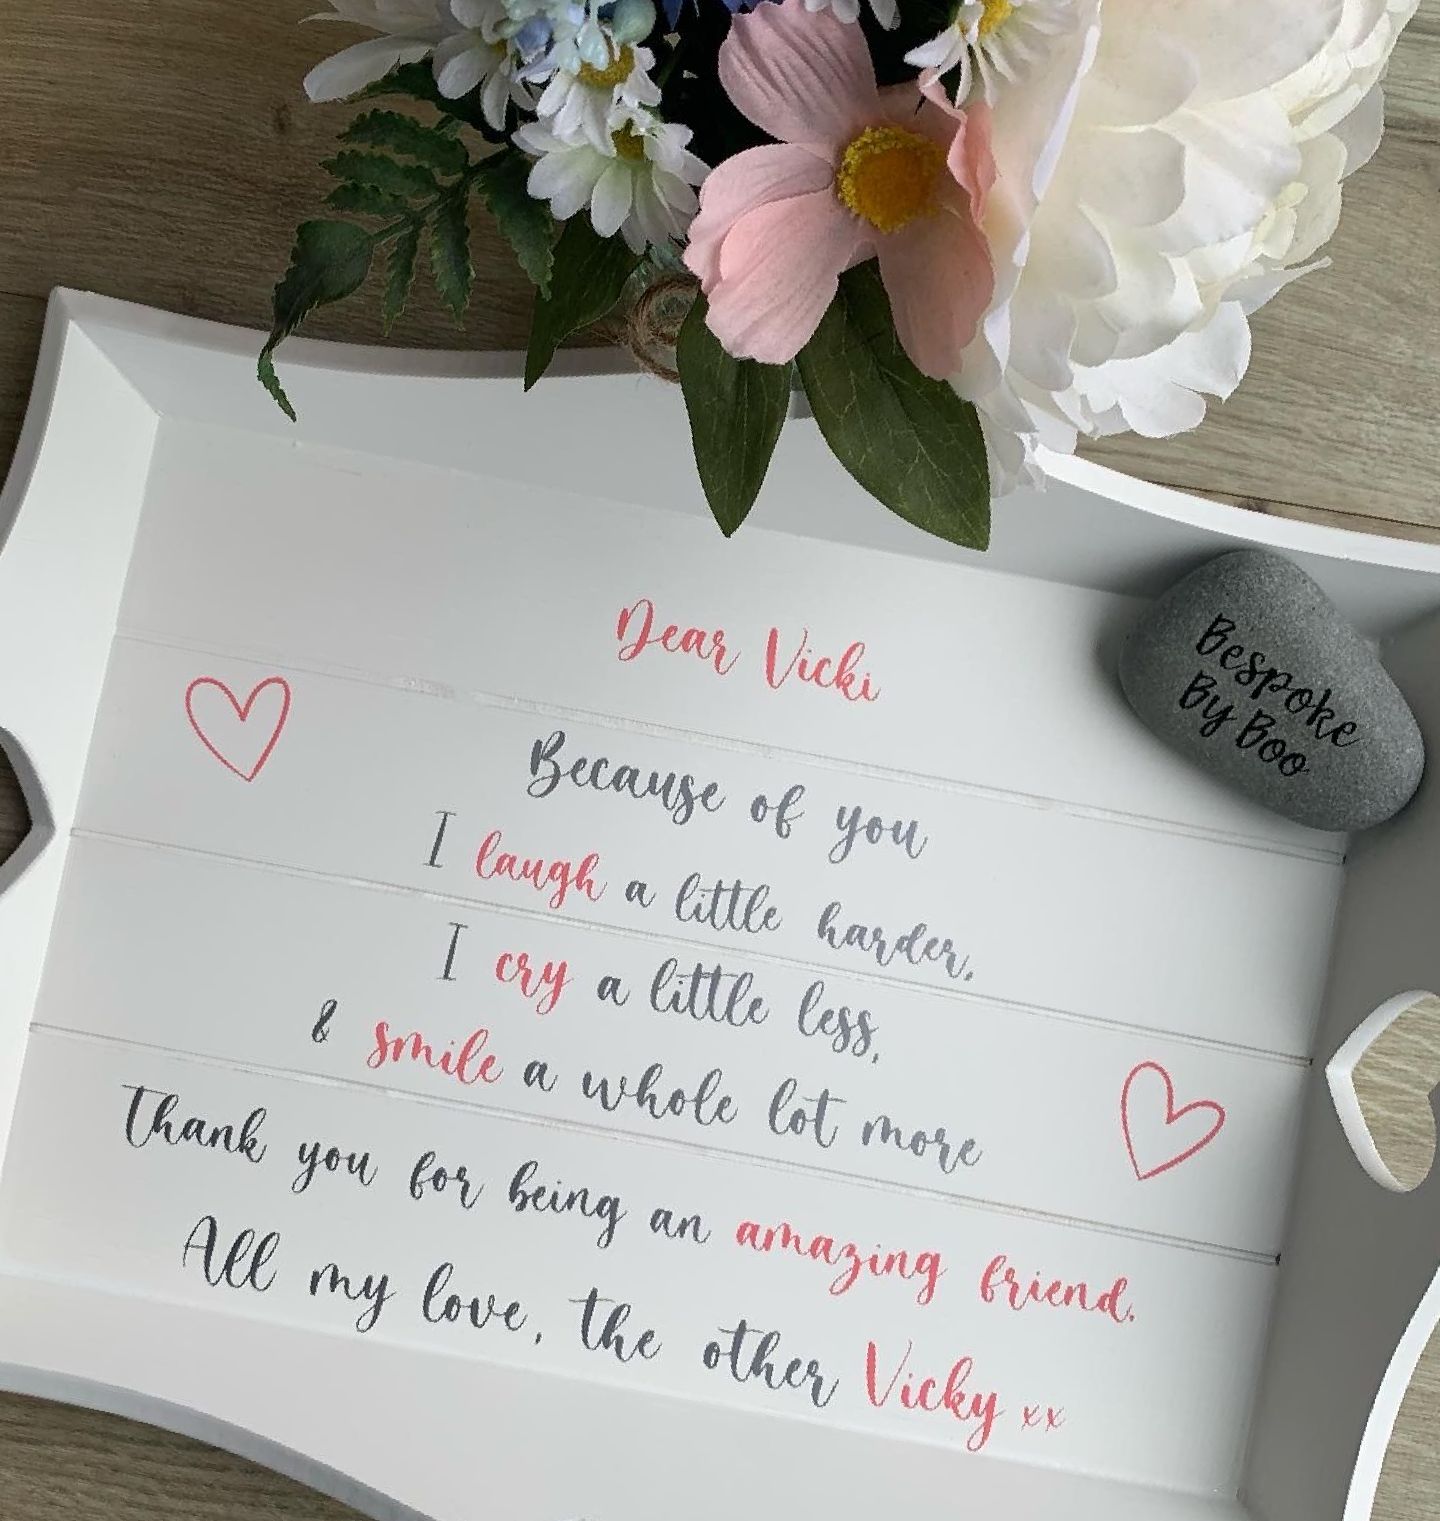 Dear Vicki
Because of you
I laugh a little harder,
I cry a little less,
& smile a whole lot more
Thank you for being an amazing friend.
All my love, the other Vicky xx
Bespoke
By Boo